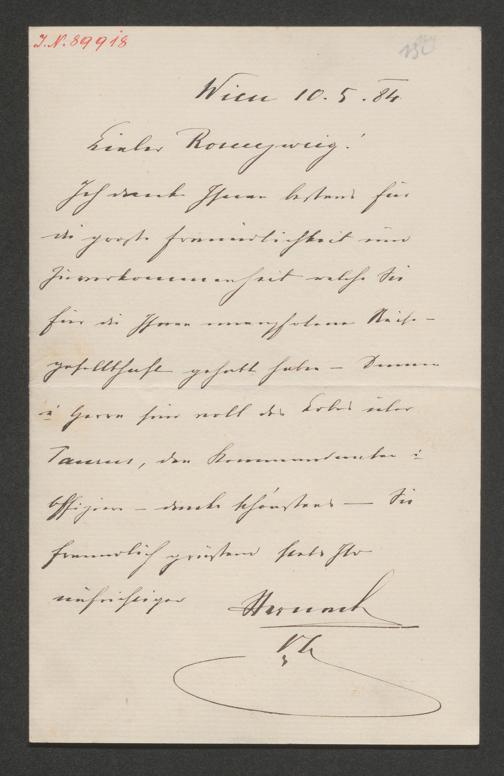 J.N. 89918
Wien 10. 5. 84
Lieber Rosenzweig!
Ich danke Ihnen bestens für
die große Freundlichkeit und
Zuvorkommenheit welche Sie
für die Ihnen empfohlene Reise-
gesellschaft gehabt haben – Damen
u Herrn sind voll des Lobes über
Taurus, den Kommandanten u
Offiziere – danke schönstens – Sie
freundlich grüßend stets Ihr
aufrichtiger Sterneck